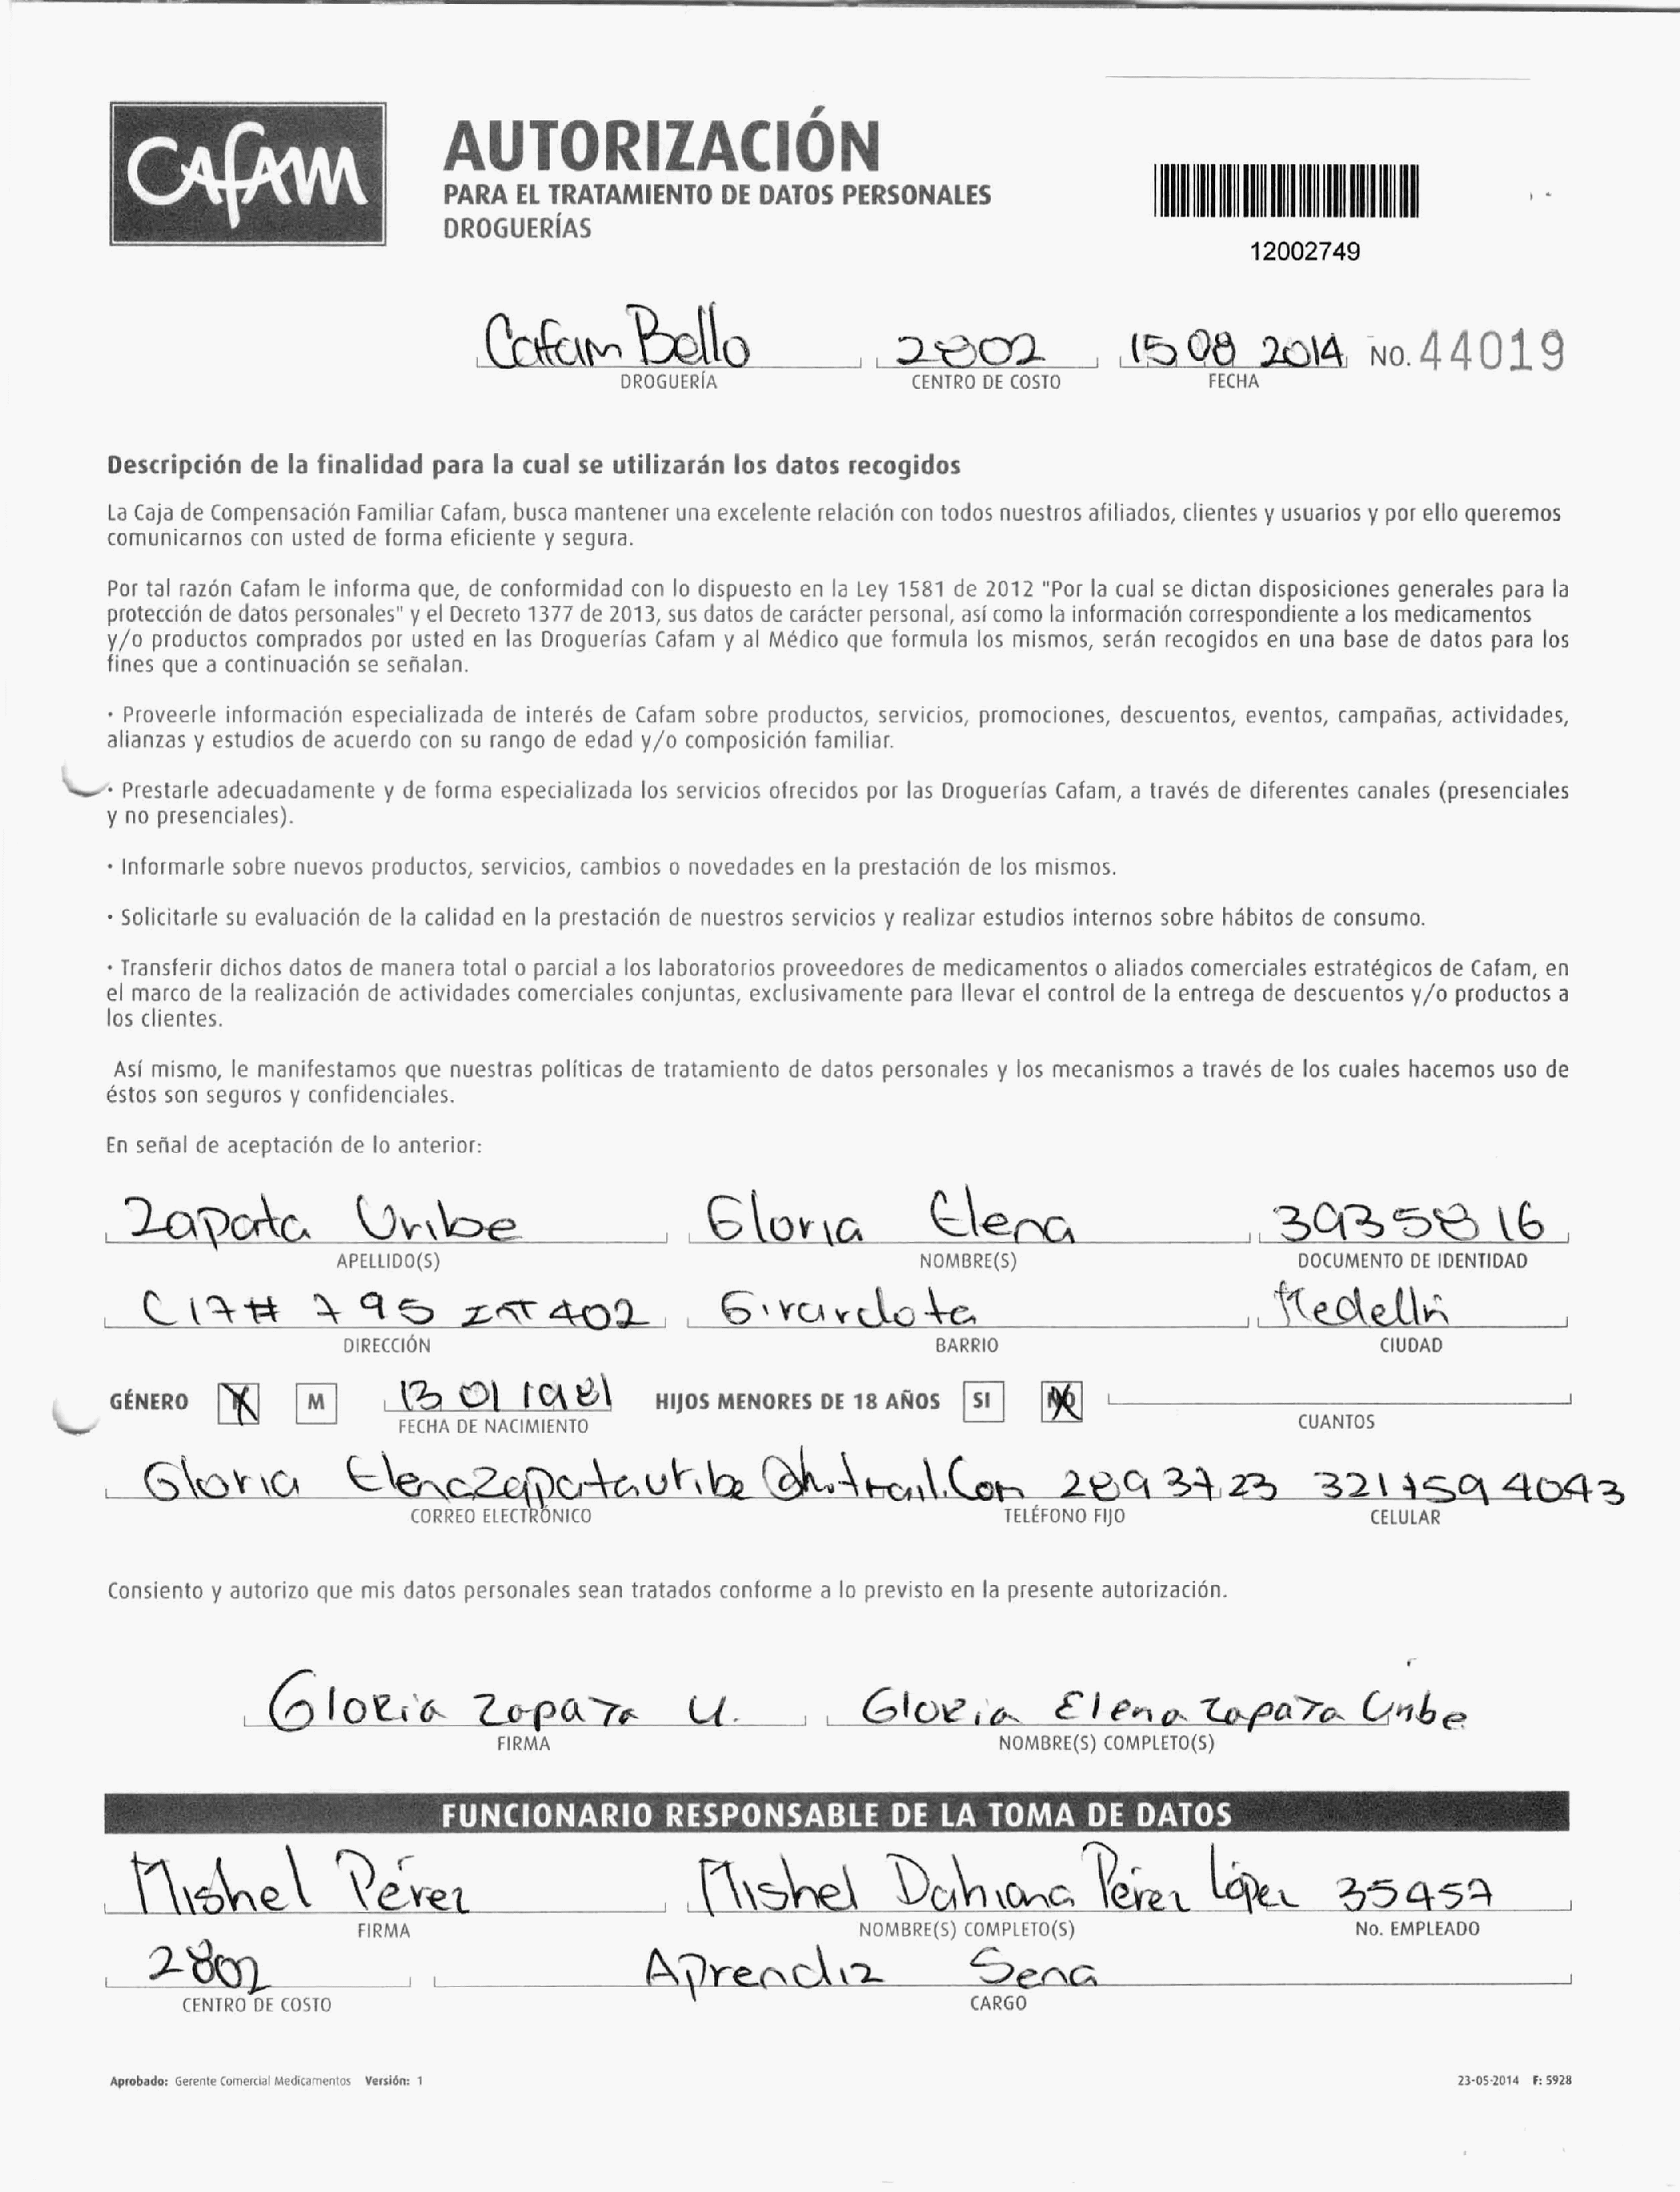 Cafam
AUTORIZACIÓN
PARA EL TRATAMIENTO DE DATOS PERSONALES
DROGUERÍAS
12002749
Cafam Bello 2802 15 08 2014 NO. 44019
DROGUERÍA CENTRO DE COSTO FECHA
Descripción de la finalidad para la cual se utilizarán los datos recogidos
La Caja de Compensación Familiar Cafam, busca mantener una excelente relación con todos nuestros afiliados, clientes y usuarios y por ello queremos
comunicarnos con usted de forma eficiente y segura.
Por tal razón Cafam le informa que, de conformidad con lo dispuesto en la Ley 1581 de 2012 "Por la cual se dictan disposiciones generales para la
protección de datos personales" y el Decreto 1377 de 2013, sus datos de carácter personal, así como la información correspondiente a los medicamentos
y/o productos comprados por usted en las Droguerías Cafam y al Médico que formula los mismos, serán recogidos en una base de datos para los
fines que a continuación se señalan.
· Proveerle información especializada de interés de Cafam sobre productos, servicios, promociones, descuentos, eventos, campañas, actividades,
alianzas y estudios de acuerdo con su rango de edad y/o composición familiar.
· Prestarle adecuadamente y de forma especializada los servicios ofrecidos por las Droguerías Cafam, a través de diferentes canales (presenciales
y no presenciales).
· Informarle sobre nuevos productos, servicios, cambios o novedades en la prestación de los mismos.
· Solicitarle su evaluación de la calidad en la prestación de nuestros servicios y realizar estudios internos sobre hábitos de consumo.
· Transferir dichos datos de manera total o parcial a los laboratorios proveedores de medicamentos o aliados comerciales estratégicos de Cafam, en
el marco de la realización de actividades comerciales conjuntas, exclusivamente para llevar el control de la entrega de descuentos y/o productos a
los clientes.
Así mismo, le manifestamos que nuestras políticas de tratamiento de datos personales y los mecanismos a través de los cuales hacemos uso de
éstos son seguros y confidenciales.
En señal de aceptación de lo anterior:
Zapata Uribe Gloria Elena 39358816
APELLIDO(S) NOMBRE(S) DOCUMENTO DE IDENTIDAD
C 17 # 7 95 INT 402 Girardota Medellín
DIRECCIÓN BARRIO CIUDAD
GÉNERO X M 13 01 1981 HIJOS MENORES DE 18 AÑOS SI NO
FECHA DE NACIMIENTO CUANTOS
Gloria Elenazapatauribe@hotmail.Com 2893723 3217594043
CORREO ELECTRÓNICO TELÉFONO FIJO CELULAR
Consiento y autorizo que mis datos personales sean tratados conforme a lo previsto en la presente autorización.
Gloria Zapata U. Gloria Elena Zapata Uribe
FIRMA NOMBRE(S) COMPLETO(S)
FUNCIONARIO RESPONSABLE DE LA TOMA DE DATOS
Mishel Pérez Mishel Dahiana Pérez López 35457
FIRMA NOMBRE(S) COMPLETO(S) No. EMPLEADO
2802 Aprendiz Sena
CENTRO DE COSTO CARGO
Aprobado: Gerente Comercial Medicamentos Versión: 1 23-05-2014 F: 5928